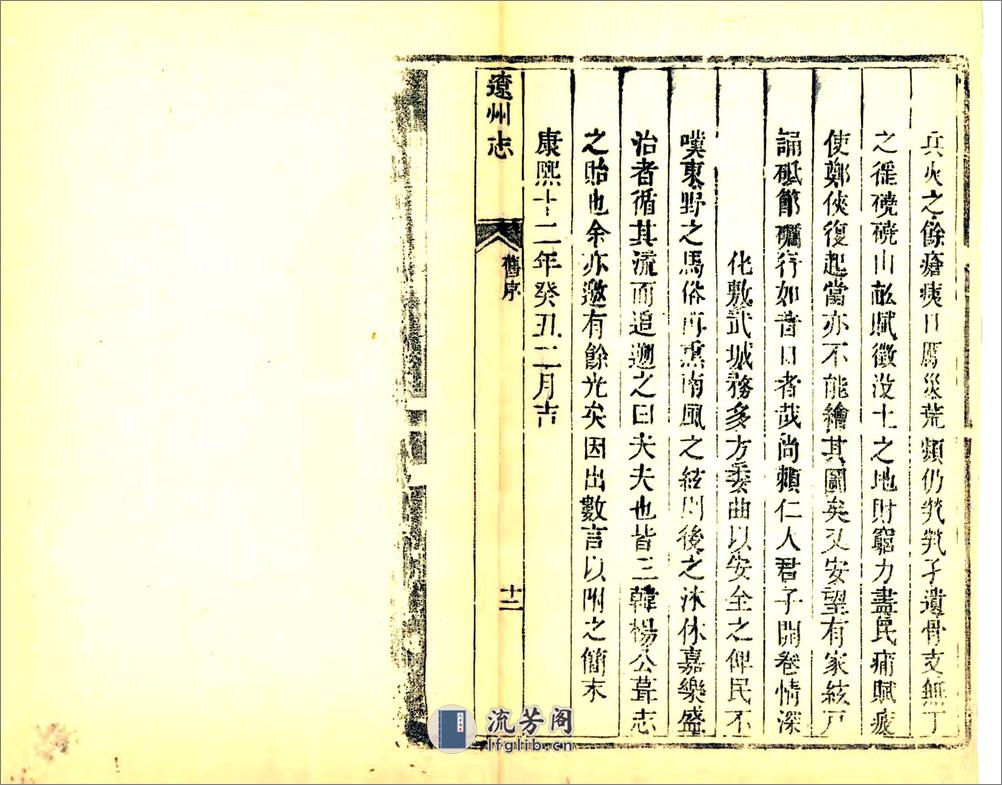 兵火之餘瘡痍日厲災荒頻仍煢煢孑遺骨支無丁
之徭磽磽山畆賦徵没土之地財窮力盡民痛賦疲
使鄭俠復起當亦不能繪其圖矣又安望有家絃戸
誦砥節礪行如昔日者哉尚賴仁人君子開卷情深
化敷武城務多方委曲以安全之俾民不
嘆東野之馬俗再熏南風之絃則後之沐休嘉樂盛
治者循其流而追遡之曰夫夫也皆三韓楊公葺志
之貽也余亦邀有餘光矣因出數言以附之簡末
康熙十二年癸丑二月吉
遼州志
舊序
十二
流芳阁
lfglib.cn